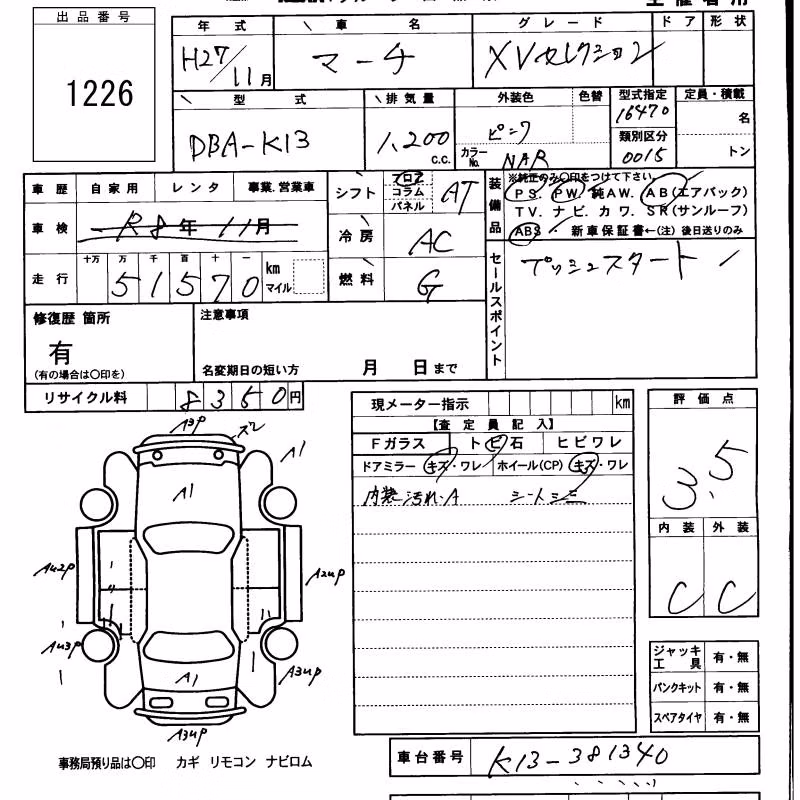 出品番号
1226
年式 車名 グレード ドア 形状
H27/11月 マーチ XVセレクション
型式 排気量 外装色 色替 型式指定 定員・積載
DBA-K13 1,200 c.c. ピンク カラーNo. NAR 16470 名
類別区分 0015 トン
車歴 自家用 レンタ 事業.営業車
車検 R8年11月
走行 十万 万 千 百 十 一
51570 km マイル
シフト フロア コラム パネル AT
冷房 AC
燃料 G
装備品 ※純正のみ〇印をつけて下さい。
PS. PW. 純AW. AB(エアバック)
TV. ナビ. カワ. SR(サンルーフ)
ABS ・ 新車保証書←(注)後日送りのみ
セールスポイント
プッシュスタート
修復歴 箇所
有
(有の場合は〇印を)
注意事項
名変期日の短い方 月 日まで
リサイクル料 8350円
現メーター指示 km
【査定員記入】
Fガラス トビ石 ヒビワレ
ドアミラー キズ・ワレ ホイール(CP) キズ・ワレ
内装汚れ・A シートシミ
評価点
3.5
内装 外装
C C
A3P
ズレ
A1
A1
AU2P
A2UP
AU3P
A3UP
A1
A3UP
ジャッキ工具 有・無
パンクキット 有・無
スペアタイヤ 有・無
車台番号 K13-381340
事務局預り品は〇印 カギ リモコン ナビロム